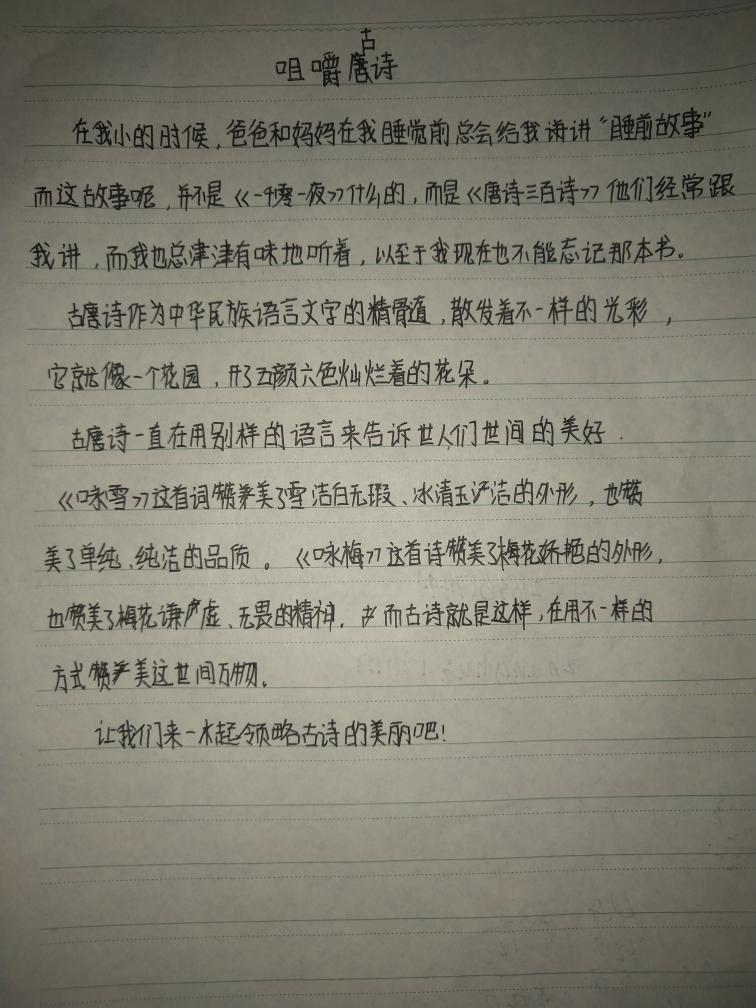 咀嚼古诗
在我小的时候，爸爸和妈妈在我睡觉前总会给我讲“睡前故事”
而这故事呢，并不是《一千零一夜》什么的，而是《唐诗三百诗》他们经常跟
我讲，而我也总津津有味地听着，以至于我现在也不能忘记那本书。
古诗作为中华民族语言文字的精髓，散发着不一样的光彩，
它就像一个花园，开了五颜六色灿烂着的花朵。
古诗一直在用别样的语言来告诉世人们世间的美好.
《咏雪》这首词赞美了雪洁白无瑕、冰清玉洁的外形，也赞
美了单纯、纯洁的品质。《咏梅》这首诗赞美了梅花娇艳的外形，
也赞美了梅花谦虚、无畏的精神.而古诗就是这样，在用不一样的
方式赞美这世间万物.
让我们来一起领略古诗的美丽吧！